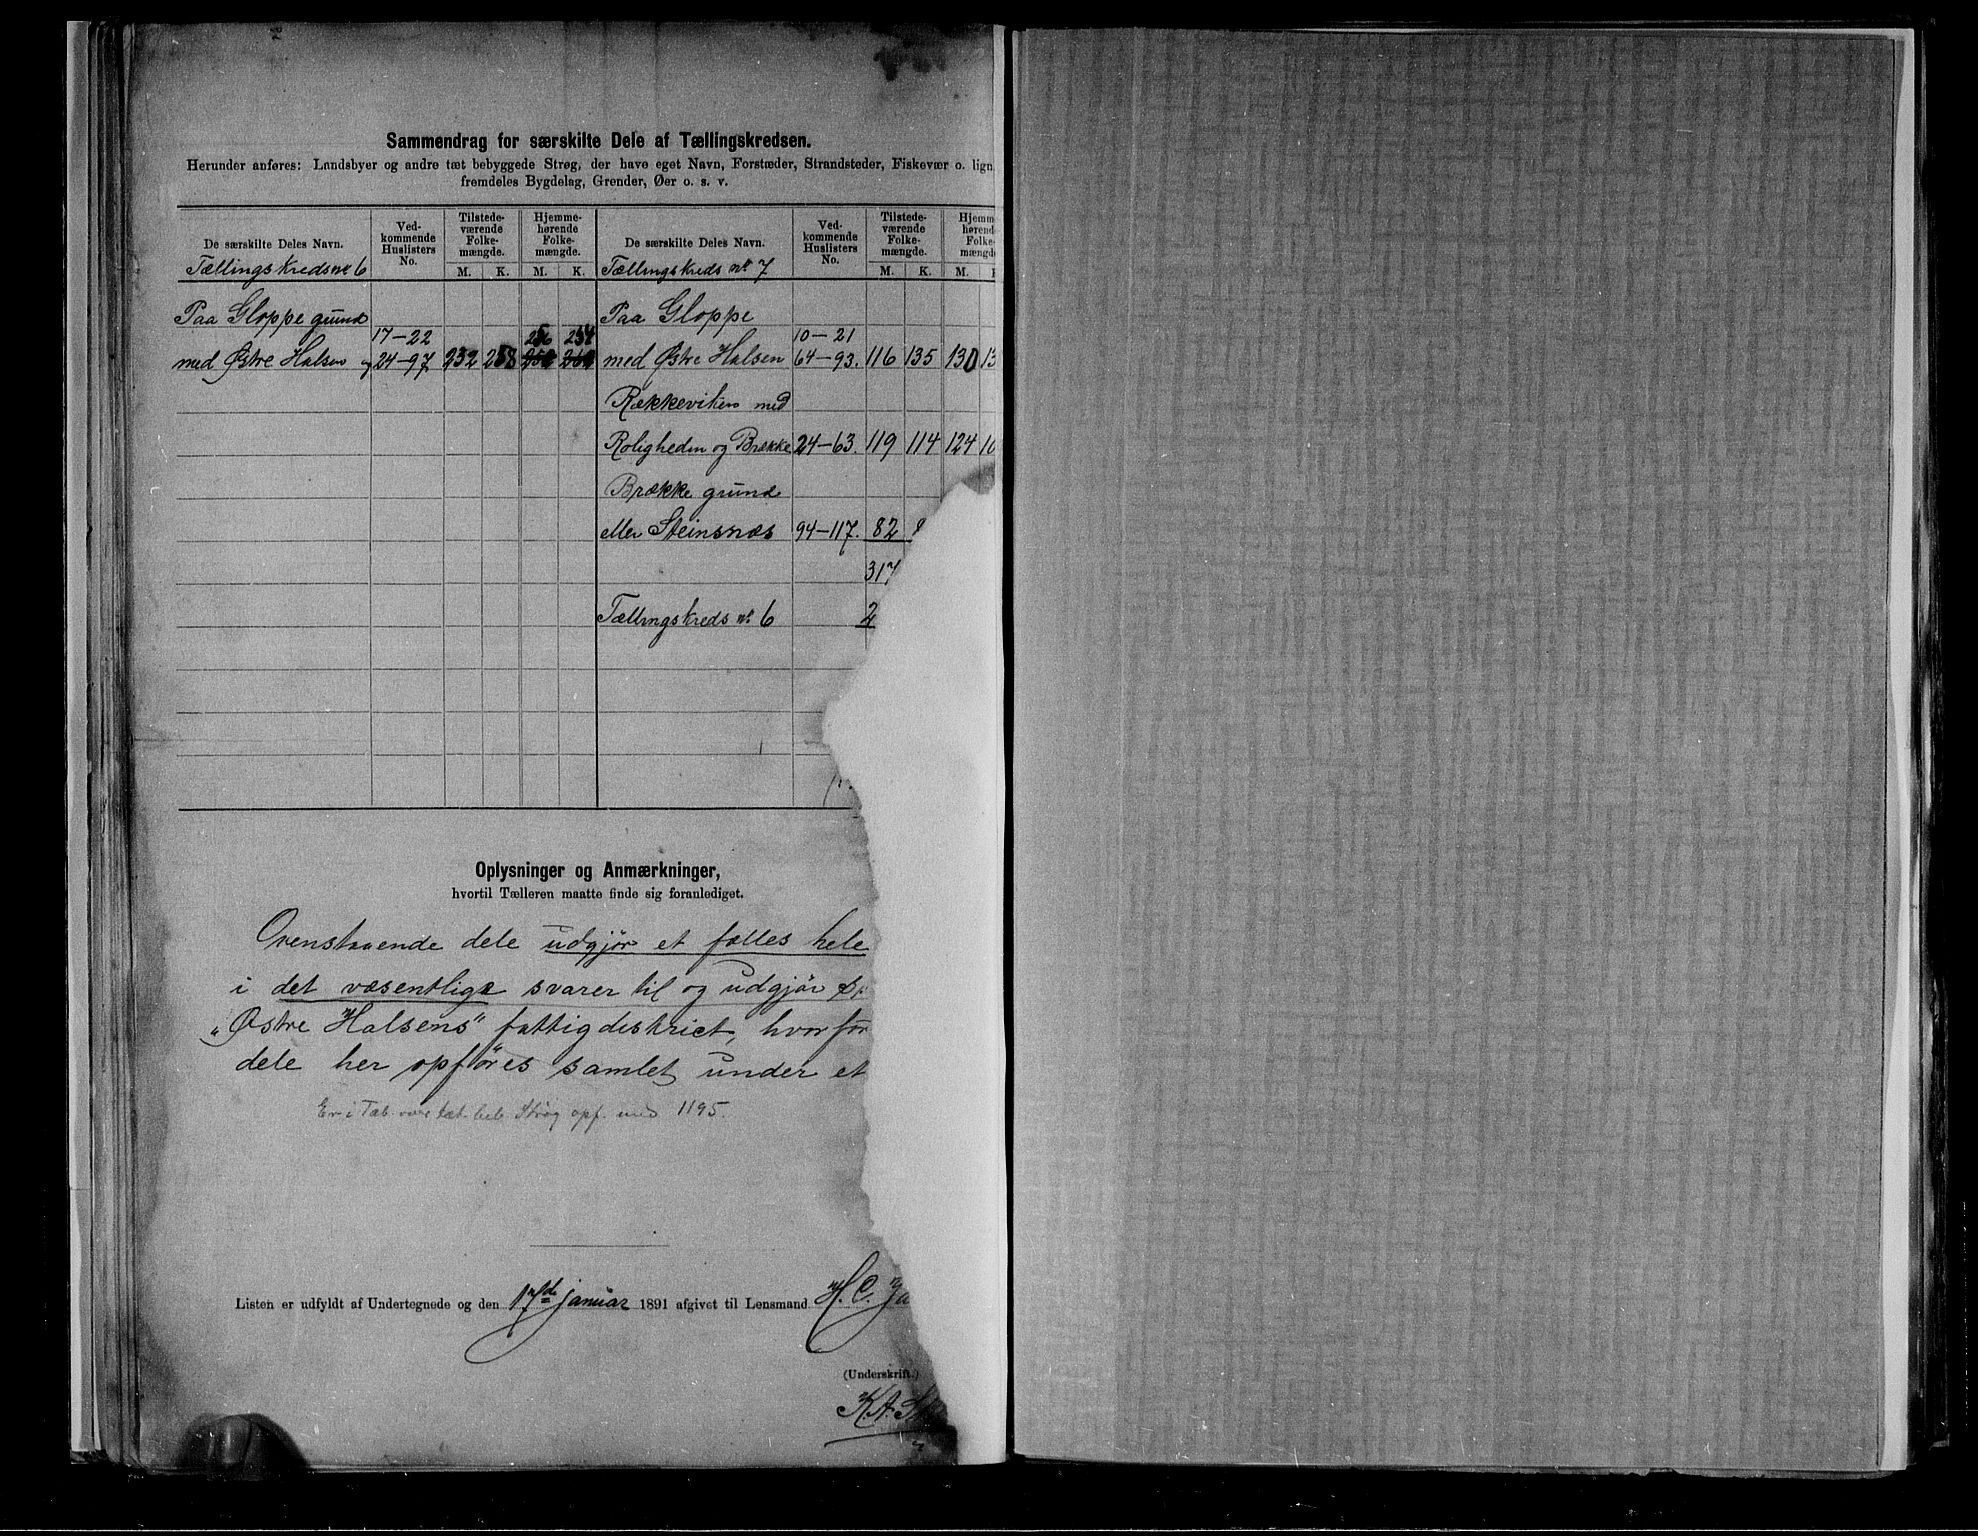 Sammendrag for særskilte Dele af Tællingskredsen.
Herunder anføres: Landsbyer og andre tæt bebyggede Strøg, der have eget Navn, Forstæder, Strandsteder, Fiskevær o. lign.
fremdeles Bygdelag, Grender, Øer o. s. v.
De særskilte Deles Navn. Ved-kommende Huslisters No. Tilstede-værende Folke-mængde. Hjemme-hørende Folke-mængde. De særskilte Deles Navn. Ved-kommende Huslisters No. Tilstede-værende Folke-mængde.
M. K. M. K. M. K. M.
Tællingskreds nr 6 Tællingskreds nr 7
Paa Gloppe grund Paa Gloppe
17-22 256 254 10-21
med Østre Halsen og 24-97 232 258 med Østre Halsen 64-93. 116 135 130
Rækkeviken med
Roligheden og Brække 24-63. 119 114 124
Brække grund
eller Steinsnæs 94-117. 82
317
Tællingskreds nr 6
Oplysninger og Anmærkninger,
hvortil Tælleren maatte finde sig foranlediget.
Ovenstaaende dele udgjør et fælles hele
i det væsentlige svarer til og udgjør
"Østre Halsens" fattigdistrict, hvorfor
dele her opføres samlet under et
Er i Tab. over tæt beb. Strøg opf. med 1195.
Listen er udfyldt af Undertegnede og den 17de januar 1891 afgivet til Lensmand.
H. C.
(Underskrift.)
K. A.